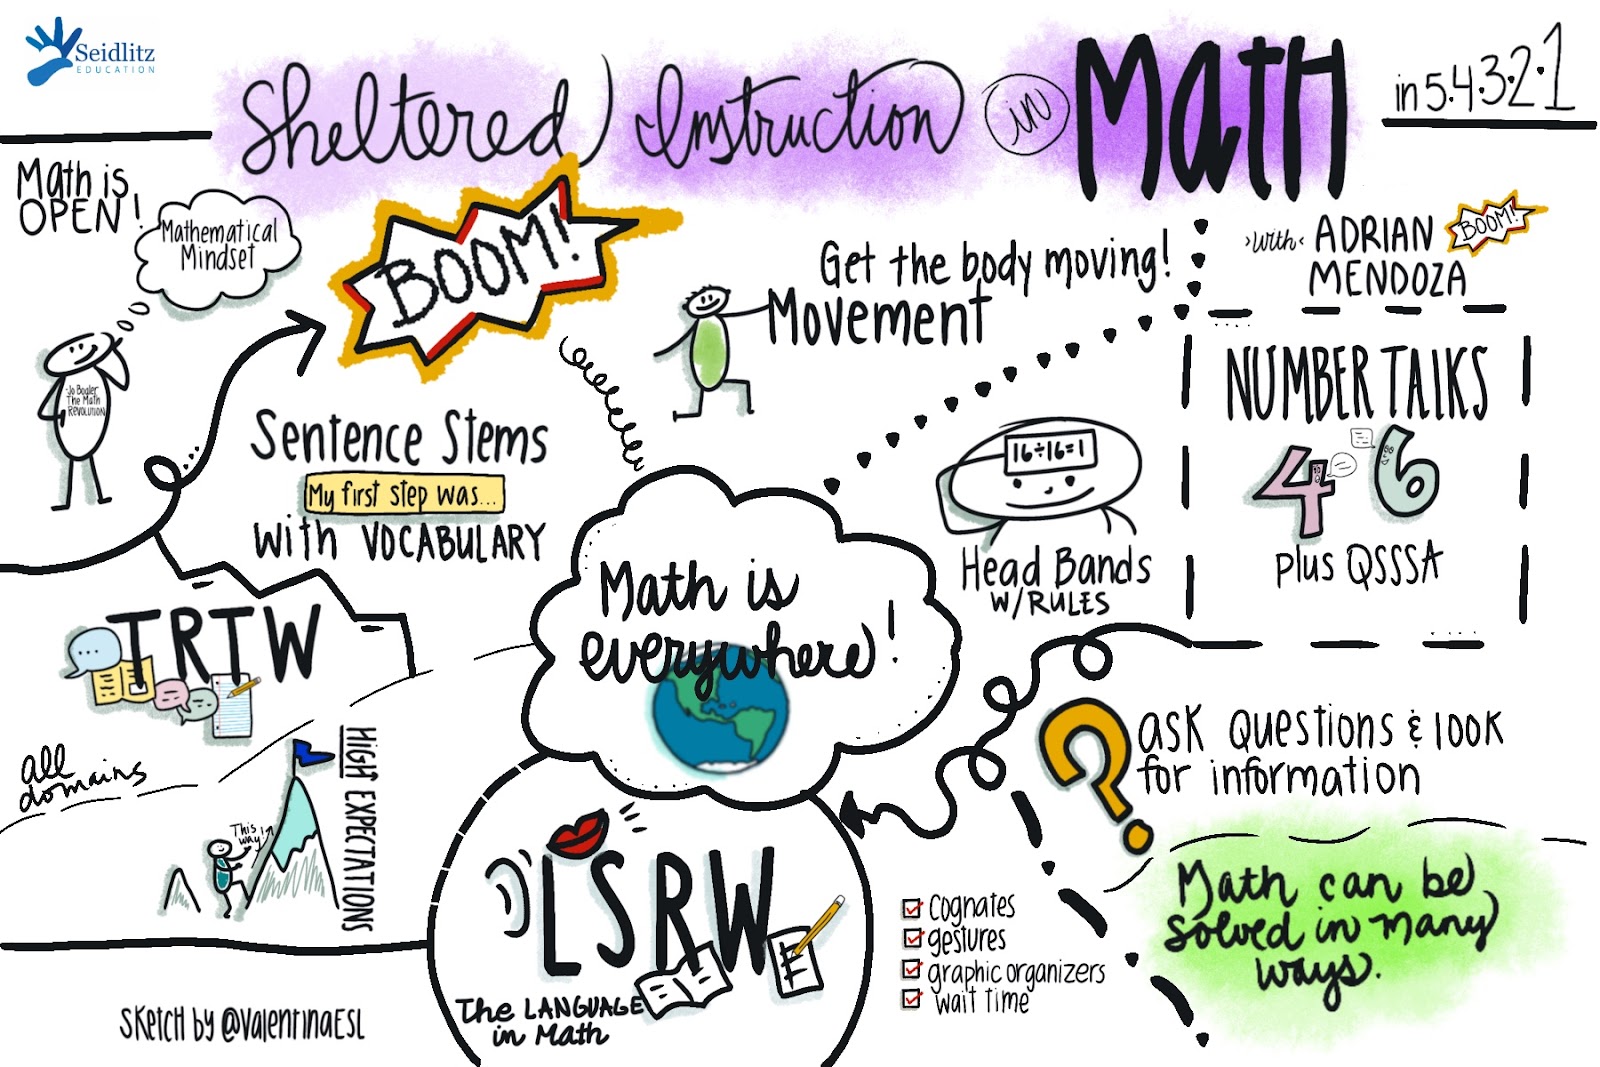 Seidlitz
EDUCATION
Sheltered Instruction in Math
in 5.4.3.2.1
with ADRIAN
MENDOZA
BOOM!
Math is
OPEN!
Mathematical
Mindset
Jo Boaler
The Math
REVOLUTION
BOOM!
Get the body moving!
Movement
Sentence Stems
My first step was...
with VOCABULARY
16÷16=1
Head Bands
W/RULES
NUMBER TALKS
4 6
plus QSSSA
Math is
everywhere!
TRTW
all
domains
This
way!
HIGH EXPECTATIONS
ask Questions & look
for information
Math can be
solved in many
ways.
LSRW
The LANGUAGE
in Math
Cognates
gestures
graphic organizers
wait time
Sketch by @ValentinaESL